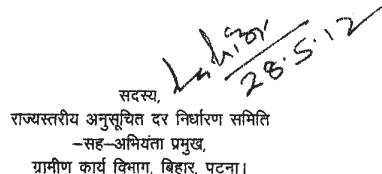 28.5.12
सदस्य,
राज्यस्तरीय अनुसूचित दर निर्धारण समिति
–सह–अभियंता प्रमुख,
ग्रामीण कार्य विभाग, बिहार, पटना।